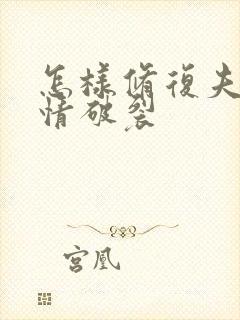 怎樣修復夫
情破裂
宮凰